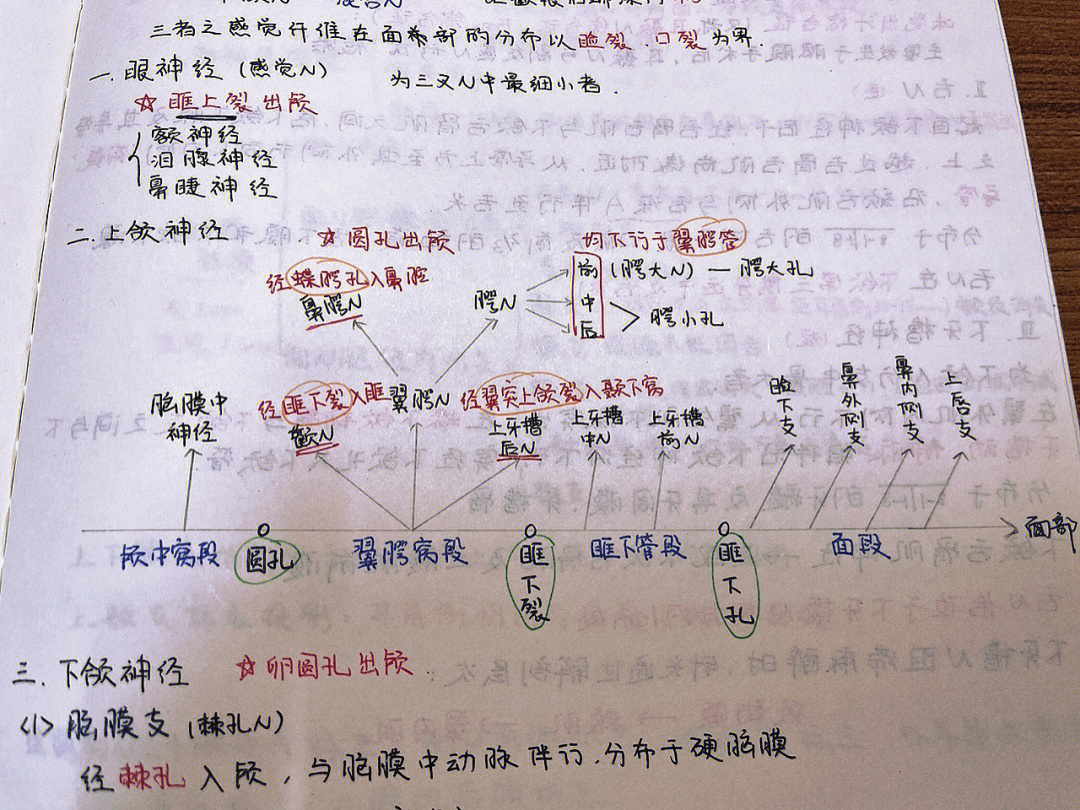 三者之感觉纤维在面部的分布以睑裂、口裂为界.
一.眼神经(感觉N) 为三叉N中最细小者.
☆眶上裂出颅
额神经
泪腺神经
鼻睫神经
二.上颌神经 ☆圆孔出颅 均下行于翼腭管
经蝶腭孔入鼻腔
鼻腭N
腭N
前(腭大N)—腭大孔
中
后
腭小孔
脑膜中神经
经眶下裂入眶
颧N
翼腭N
经翼突上颌裂入颞下窝
上牙槽后N
上牙槽中N
上牙槽前N
睑下支
鼻外侧支
鼻内侧支
上唇支
颅中窝段 圆孔 翼腭窝段 眶下裂 眶下管段 眶下孔 面段 面部
三.下颌神经 ☆卵圆孔出颅
<1>脑膜支(棘孔N)
经棘孔入颅,与脑膜中动脉伴行.分布于硬脑膜